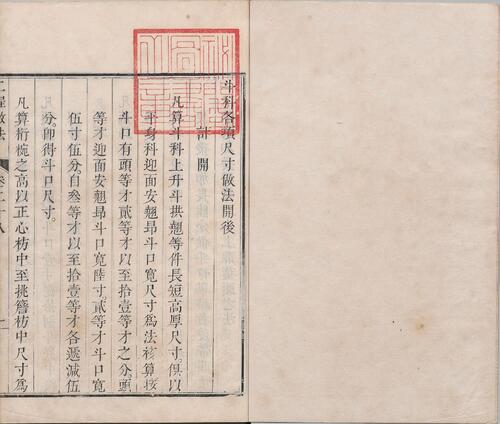 斗科各項尺寸做法開後
計開
凡算斗科上升斗拱翹等件長短高厚尺寸俱以
平身科迎面安翹昂斗口寬尺寸爲法核算
斗口有頭等才貳等才以至拾壹等才之分頭
等才迎面安翹昂斗口寬陸寸貳等才斗口寬
伍寸伍分自叁等才以至拾壹等才各遞減伍
分即得斗口尺寸
凡算桁椀之高以正心枋中至挑簷枋中尺寸爲
工程做法 卷二十八